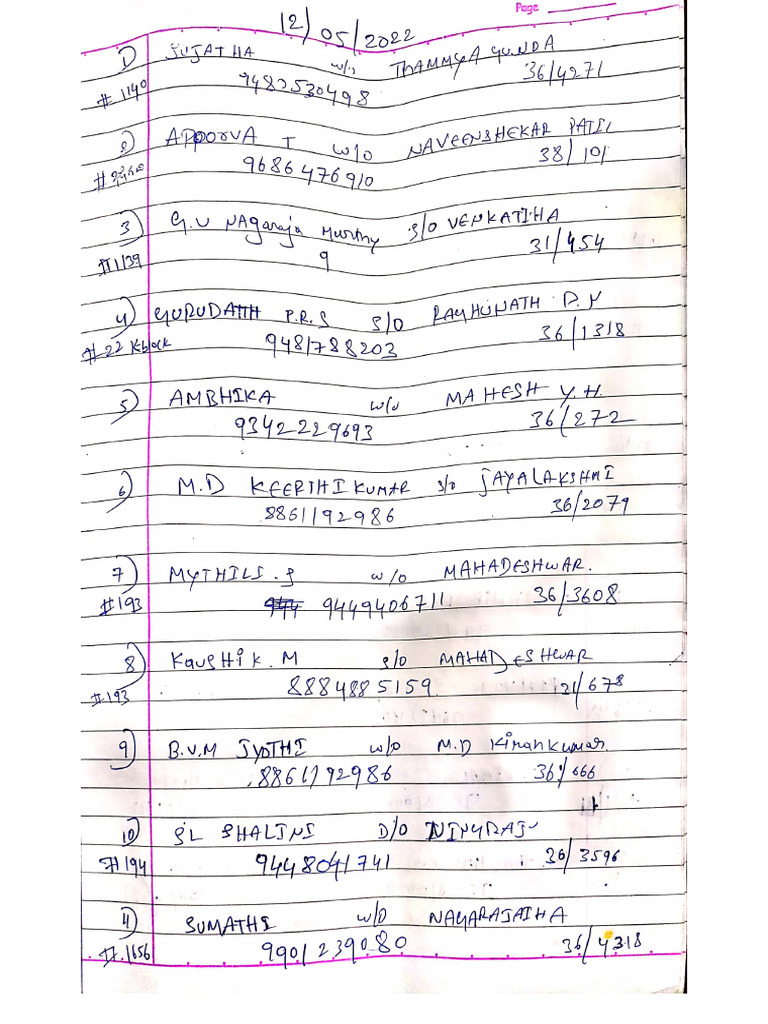 Page
12/05/2022
1) SUJATHA w/o THAMMYAGUNDA
#1140 9482530498 36/4271
2) APOORVA T w/o NAVEENSHEKAR PATIL
9686476910 38/101
3) G.V NAgaraja Murthy S/o VENKATIHA
#1139 9 31/454
4) GURUDATH P.R.S S/O RAGHUNATH D.N
#22 K block 9481788203 36/1318
5) AMBHIKA w/o MAHESH Y.H.
9342229693 36/272
6) M.D KEERTHI KUMAR S/o JAYALAKSHMI
8861192986 36/2079
7) MYTHILI.S w/o MAHADESHWAR.
#193 9449406711. 36/3608
8) KAUSHIK.M S/o MAHADESHWAR
#193 8884885159 21/678
9) B.V.M JYOTHI w/o M.D Kirankumar.
8861192986 36/666
10) SL SHALINI D/O NINGRAJU
#194 9448041741 36/3596
11) SUMATHI w/o NAGARAJAIHA
#.1656 9901239080 36/4318